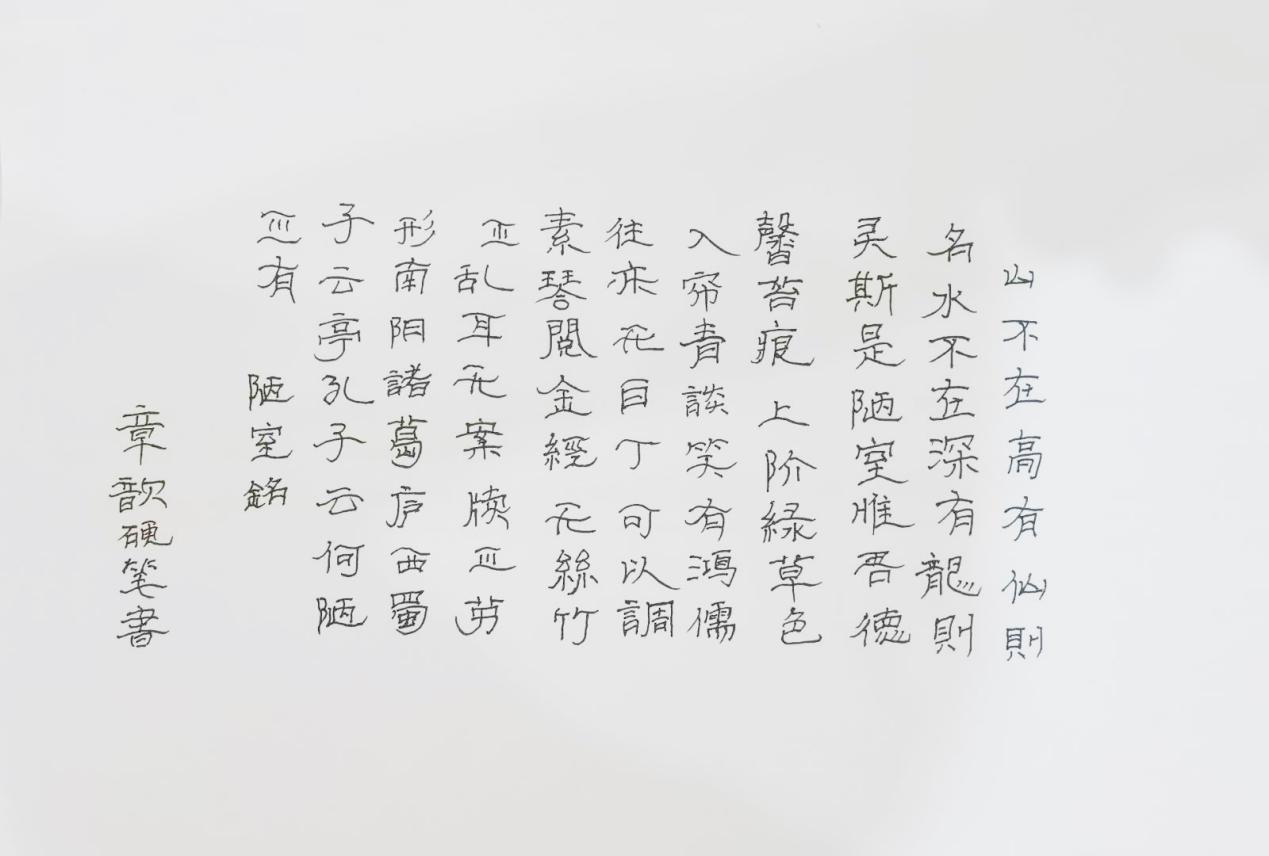 山不在高有仙則
名水不在深有龍則
灵斯是陋室惟吾德
馨苔痕上阶緑草色
入帘青談笑有鴻儒
往来无白丁可以調
素琴閲金經无絲竹
之乱耳无案牍之劳
形南阳諸葛庐西蜀
子云亭孔子云何陋
之有 陋室銘
章歆硬笔書